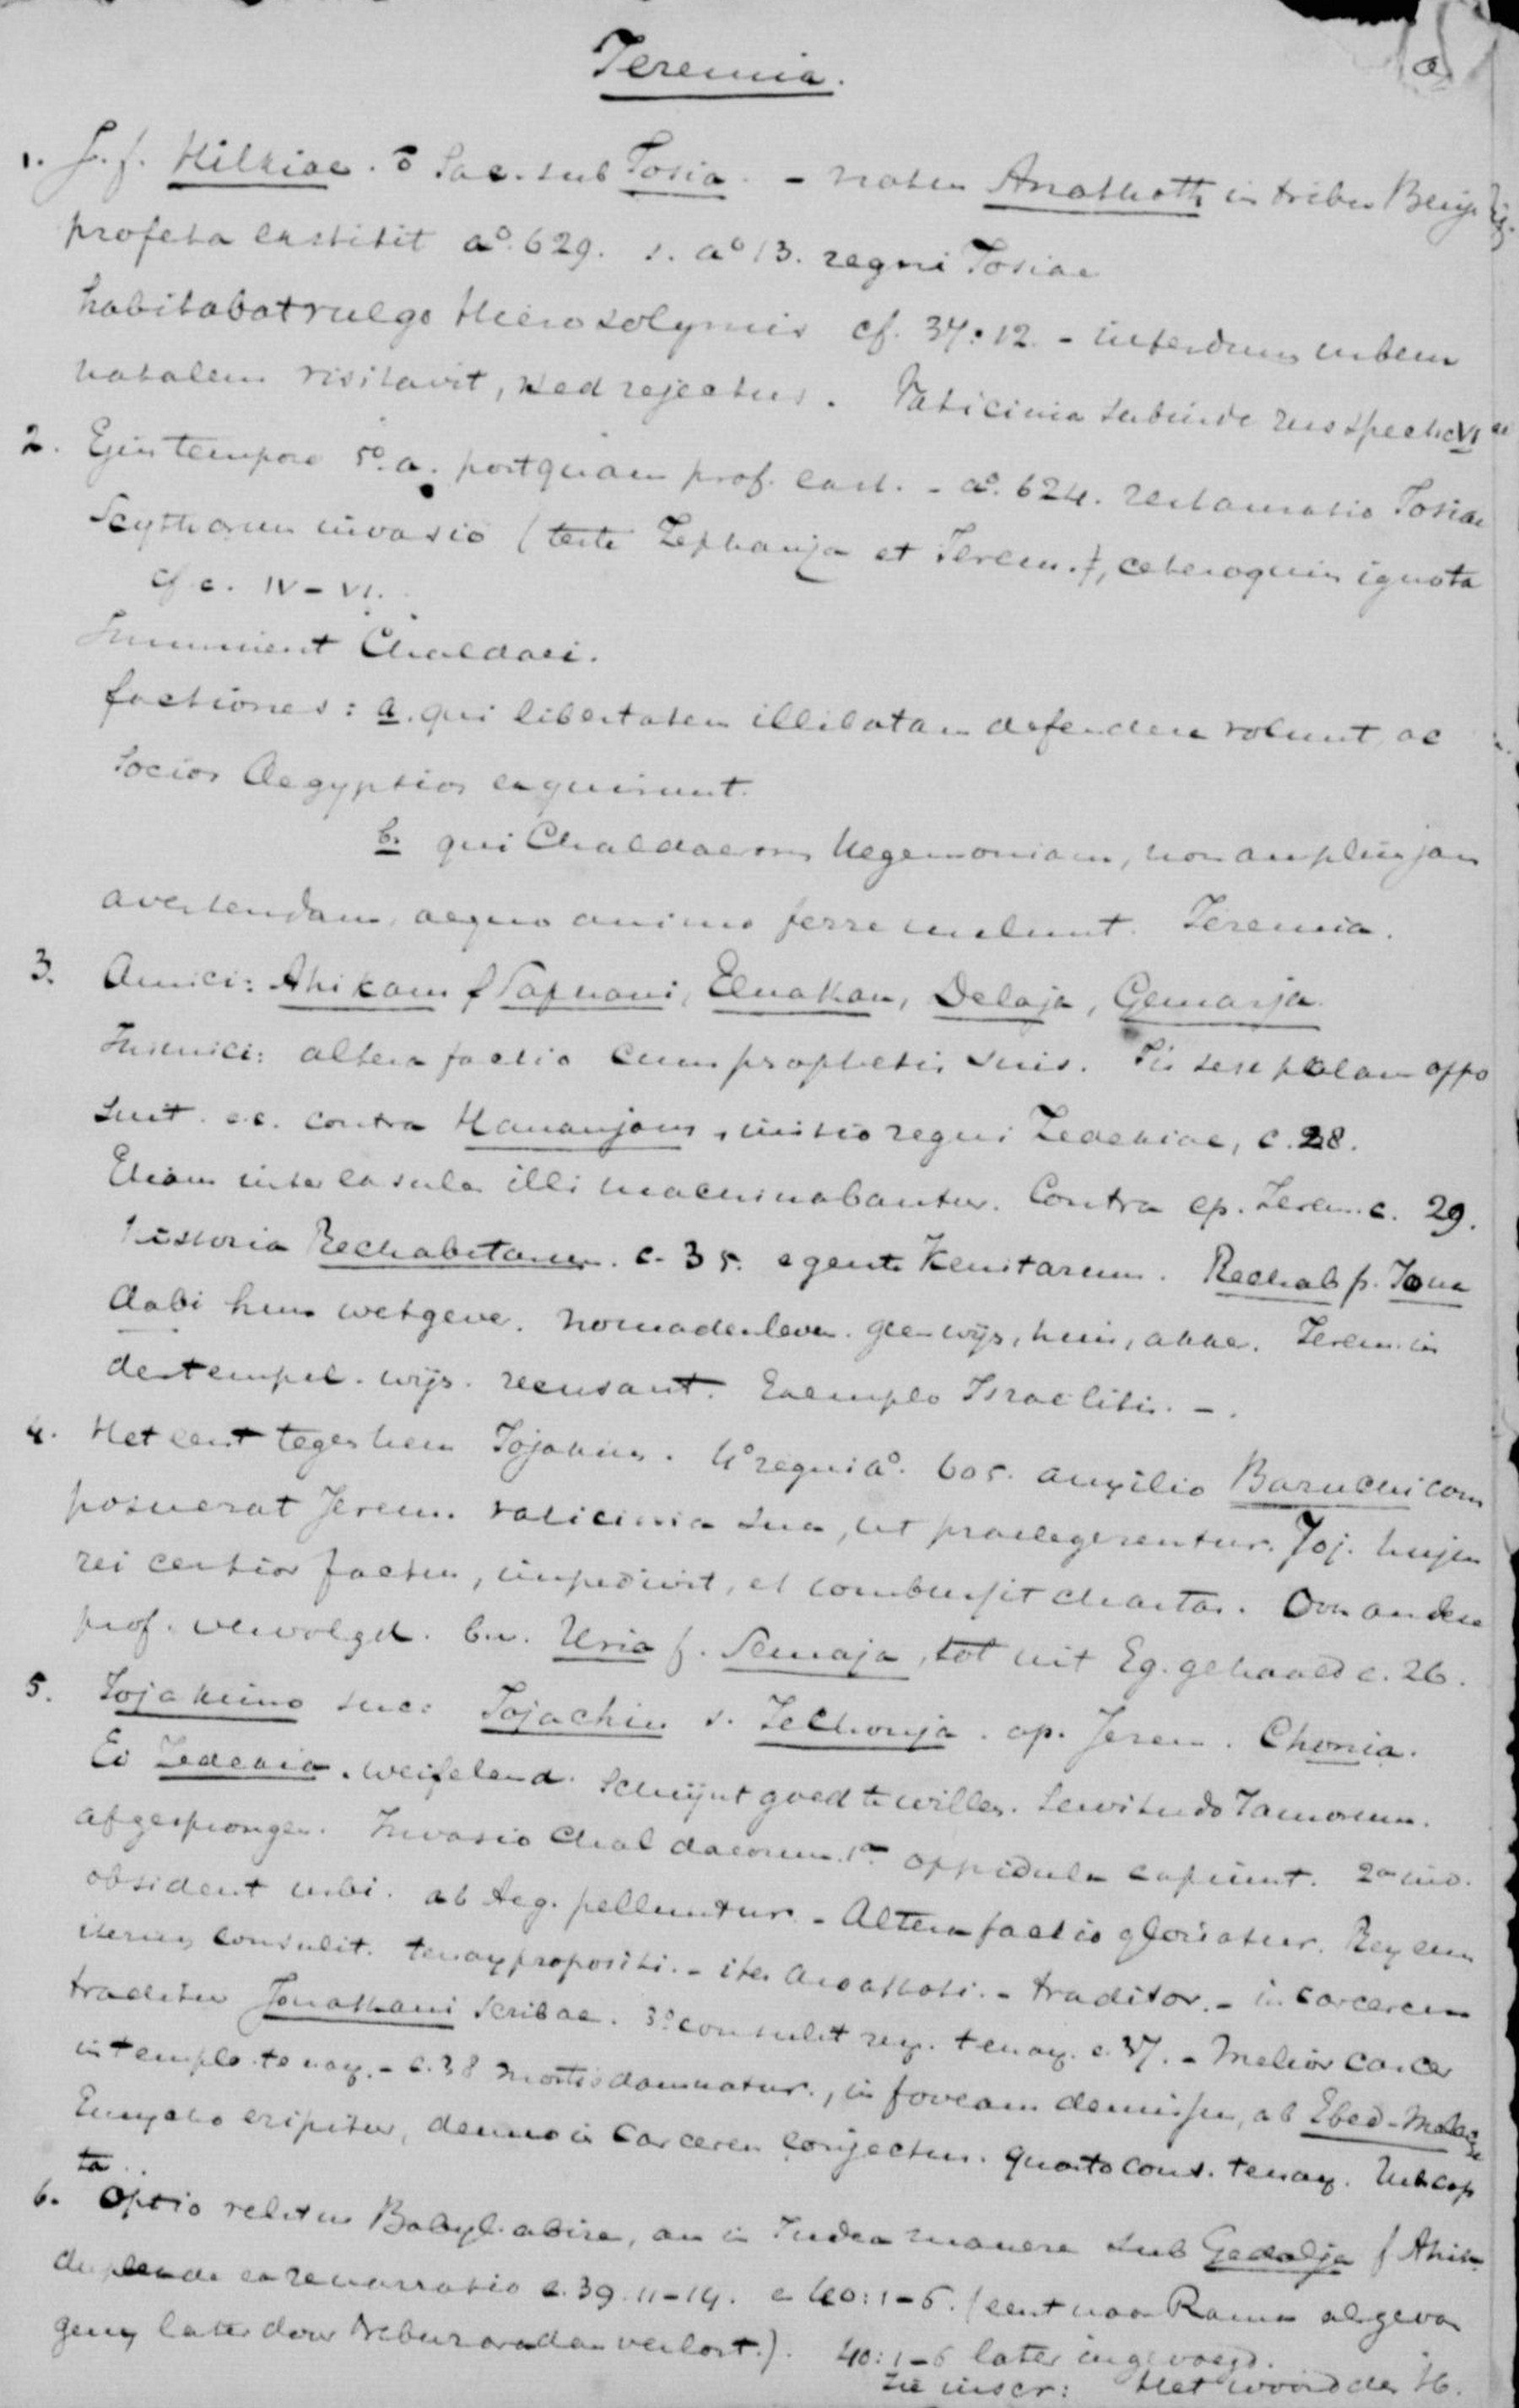 Jeremia.
a
1. J. f. Hilkiae. Sac. sub Josia. - natus Anathoth in tribu Benj.
profeta exstitit a° 629. s. a° 13. regni Josiae
habitabat vulgo Hierosolymis cf. 37:12. - interdum urbem
natalem visitavit, sed rejectus. Vaticinia subinde suspecta
2. Ejus tempore 5° a. postquam prof. exst. - a°. 624. restauratio Josiae
Scytharum invasio (teste Zephanja et Jerem.), ceteroquin ignota
cf. c. IV - VI.
Imminent Chaldaei.
factiones: a. qui libertatem illibatam defendere volunt, ac
socios Aegyptios exquirunt.
b. qui Chaldaeorum hegemoniam, non amplius jam
avertendam, aequo animo ferre malunt. Jeremia.
3. Amici: Ahikam f Safnani, Elnathan, Delaja, Gemarja.
Inimici: altera factio cum prophetis suis. Iis sese palam oppo
suit. e.c. contra Hananjam, initio regni Zedekiae, c. 28.
Etiam inter exsules illi machinabantur. Contra ep. Jerem. c. 29.
historia Rechabitarum. c. 35. e gente Kenitarum. Rechab p. Jona
dabi hun wetgever. nomadenleven. geen wijn, huis, akker. Jerem. in
den tempel. wijn. recusant. Exemplo Israelitis. -.
4. Het eerst tegen hem Jojakim. 4° regni a°. 605. auxilio Baruchi com
posuerat Jerem. vaticinia sua, ut praelegerentur. Joj. hujus
rei certior factus, impedivit, et combussit chartas. Ook andere
prof. vervolgd. bv. Uria f. Semaja, tot uit Eg. gehaald c. 26.
5. Jojakimo suc: Jojachin s. Jechonja. ap. Jerem. Chonia.
Ei Zedekia. weifelend. Schijnt goed te willen. Servitudo
afgesprongen. Invasio Chaldaeorum. 1a oppidula capiunt. 2a
obsident urbi. ab Aeg. pelluntur. - Altera factio gloriatur. Rex eum
iterum consulit. tenax propositi. - iter Anathoti. - traditor. - in carcerem
traditur Jonathani scribae. 3° consulit rex. tenax. c. 37. - Melior carcer
in templo. tenax. - c. 38 mortis damnatur, in foveam demissus, ab Ebed-Melech
Eunucho eripitur, denuo in carcerem conjectus. quarto cons. tenax. Urbs cap
ta.
6. Optio relictus Babyl. abire, an in Judea manere sub Gedalja f Ahik.
duplex de ea re narratio c. 39. 11-14. c 40:1-6. (eerst naar Rama als gevan
gene, later door Nebuzaradan verlost.). 40:1-6 later ingevoegd.
inscr: Het woord des H.